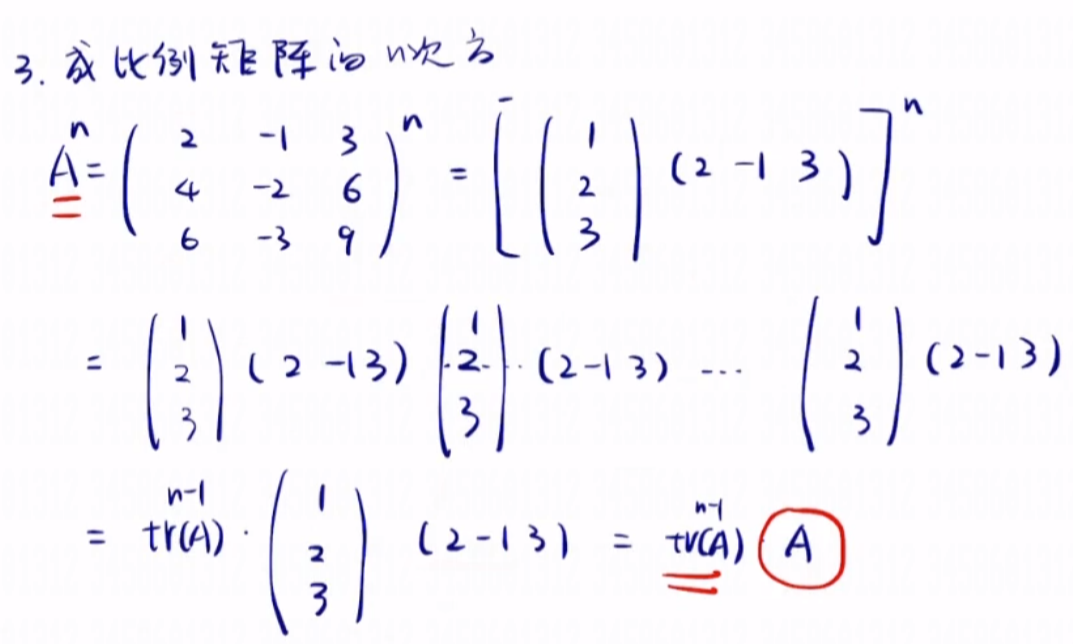 3. 成比例矩阵的n次方
Aⁿ = ( 2 -1 3 ; 4 -2 6 ; 6 -3 9 )ⁿ = [ ( 1 ; 2 ; 3 ) (2 -1 3) ]ⁿ
= ( 1 ; 2 ; 3 ) (2 -1 3) ( 1 ; 2 ; 3 ) · (2 -1 3) ... ( 1 ; 2 ; 3 ) (2 -1 3)
= trⁿ⁻¹(A) · ( 1 ; 2 ; 3 ) (2 -1 3) = trⁿ⁻¹(A) A